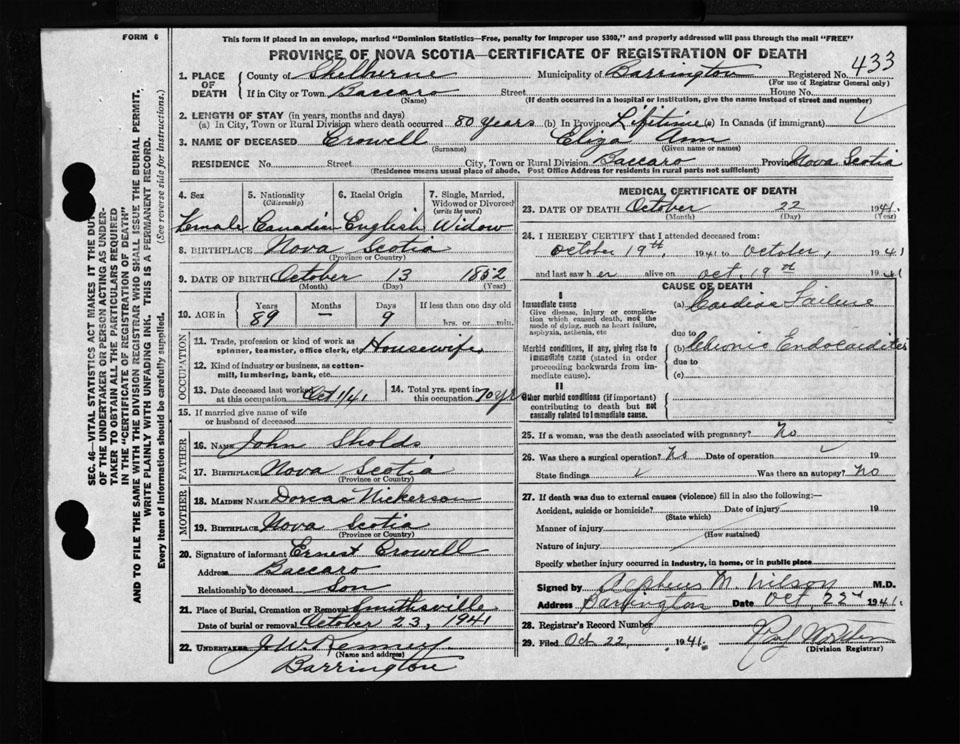 FORM 6
This form if placed in an envelope, marked "Dominion Statistics—Free, penalty for improper use $300," and properly addressed will pass through the mail "FREE"
PROVINCE OF NOVA SCOTIA—CERTIFICATE OF REGISTRATION OF DEATH
1. PLACE OF DEATH
County of Shelburne Municipality of Barrington Registered No. 433
(For use of Registrar General only)
If in City or Town Baccaro Street House No.
(Name) (If death occurred in a hospital or institution, give the name instead of street and number)
2. LENGTH OF STAY (in years, months and days)
(a) In City, Town or Rural Division where death occurred 80 years (b) In Province Lifetime (c) In Canada (if immigrant) ✓
3. NAME OF DECEASED Crowell Eliza Ann
(Surname) (Given name or names)
RESIDENCE No. Street City, Town or Rural Division Baccaro Province Nova Scotia
(Residence means usual place of abode. Post Office Address for residents in rural parts not sufficient)
4. Sex 5. Nationality (Citizenship) 6. Racial Origin 7. Single, Married, Widowed or Divorced (write the word)
Female Canadian English Widow
8. BIRTHPLACE Nova Scotia
(Province or Country)
9. DATE OF BIRTH October 13 1852
(Month) (Day) (Year)
10. AGE IN Years Months Days If less than one day old
89 — 9 hrs. or min.
OCCUPATION
11. Trade, profession or kind of work as spinner, teamster, office clerk, etc. Housewife
12. Kind of industry or business, as cotton-mill, lumbering, bank, etc.
13. Date deceased last worked at this occupation Oct 1/41 14. Total yrs. spent in this occupation 70 yrs
15. If married give name of wife or husband of deceased
FATHER
16. NAME John Sholds
17. BIRTHPLACE Nova Scotia
(Province or Country)
MOTHER
18. MAIDEN NAME Dorcas Nickerson
19. BIRTHPLACE Nova Scotia
(Province or Country)
20. Signature of informant Ernest Crowell
Address Baccaro
Relationship to deceased Son
21. Place of Burial, Cremation or Removal Smithsville
Date of burial or removal October 23, 1941
22. UNDERTAKER J.W. Kenney
(Name and address)
Barrington
MEDICAL CERTIFICATE OF DEATH
23. DATE OF DEATH October 22 1941.
(Month) (Day) (Year)
24. I HEREBY CERTIFY that I attended deceased from:
October 19th, 1941 to October, 1941
and last saw her alive on Oct, 19th 1941
CAUSE OF DEATH
I
Immediate cause (a) Cardiac Failure
Give disease, injury or complication which caused death, not the mode of dying, such as heart failure, asphyxia, asthenia, etc
due to
Morbid conditions, if any, giving rise to immediate cause (stated in order proceeding backwards from immediate cause).
(b) Chronic Endocarditis
due to
(c)
II
Other morbid conditions (if important) contributing to death but not causally related to immediate cause.
25. If a woman, was the death associated with pregnancy? No
26. Was there a surgical operation? No Date of operation ✓ 19
State findings ✓ Was there an autopsy? No
27. If death was due to external causes (violence) fill in also the following:—
Accident, suicide or homicide? Date of injury 19
(State which)
Manner of injury
(How sustained)
Nature of injury
Specify whether injury occurred in industry, in home, or in public place
Signed by M. Wilson M.D.
Address Barrington Date Oct, 22nd 1941.
28. Registrar's Record Number
29. Filed Oct 22 1941.
(Division Registrar)
SEC. 46—VITAL STATISTICS ACT MAKES IT THE DUTY OF THE UNDERTAKER OR PERSON ACTING AS UNDERTAKER TO OBTAIN ALL THE PARTICULARS REQUIRED IN THE "CERTIFICATE OF REGISTRATION OF DEATH" AND TO FILE THE SAME WITH THE DIVISION REGISTRAR WHO SHALL ISSUE THE BURIAL PERMIT.
WRITE PLAINLY WITH UNFADING INK. THIS IS A PERMANENT RECORD.
Every item of Information should be carefully supplied. (See reverse side for instructions.)